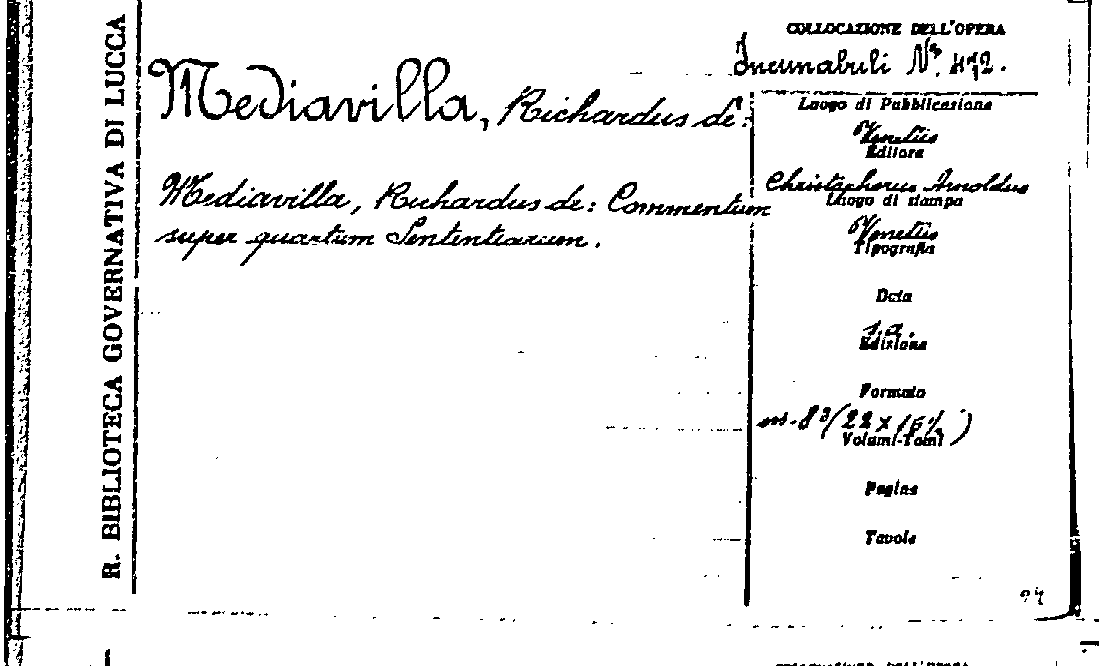 R. BIBLIOTECA GOVERNATIVA DI LUCCA
COLLOCAZIONE DELL'OPERA
Incunabuli N.º 472.
Mediavilla, Richardus de:
Mediavilla, Richardus de: Commentum
super quartum Sententiarum.
Luogo di Pubblicazione
Venetiis
Editore
Christophorus Arnoldus
Luogo di stampa
Venetiis
Tipografia
Data
s.a.
Edizione
Formato
in-8º (22 x 15½)
Volumi-Tomi
Pagine
Tavole
COLLOCAZIONE DELL'OPERA